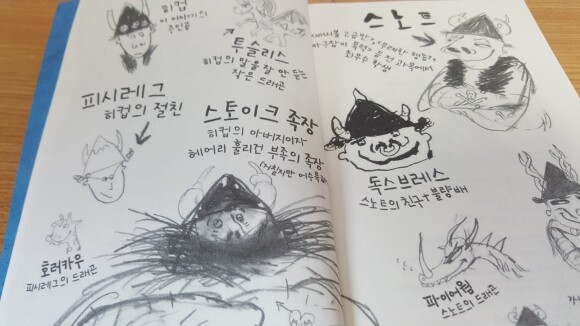 히컵
이 이야기의
주인공
투슬리스
히컵의 말을 잘 안 듣는
작은 드래곤
피시레그
히컵의 절친
스토이크 족장
히컵의 아버지이자
헤어리 훌리건 부족의 족장
호러카우
피시레그의 드래곤
스노트
최우수 학생
독스브레스
스노트의 친구+불량배
파이어웜
스노트의 드래곤